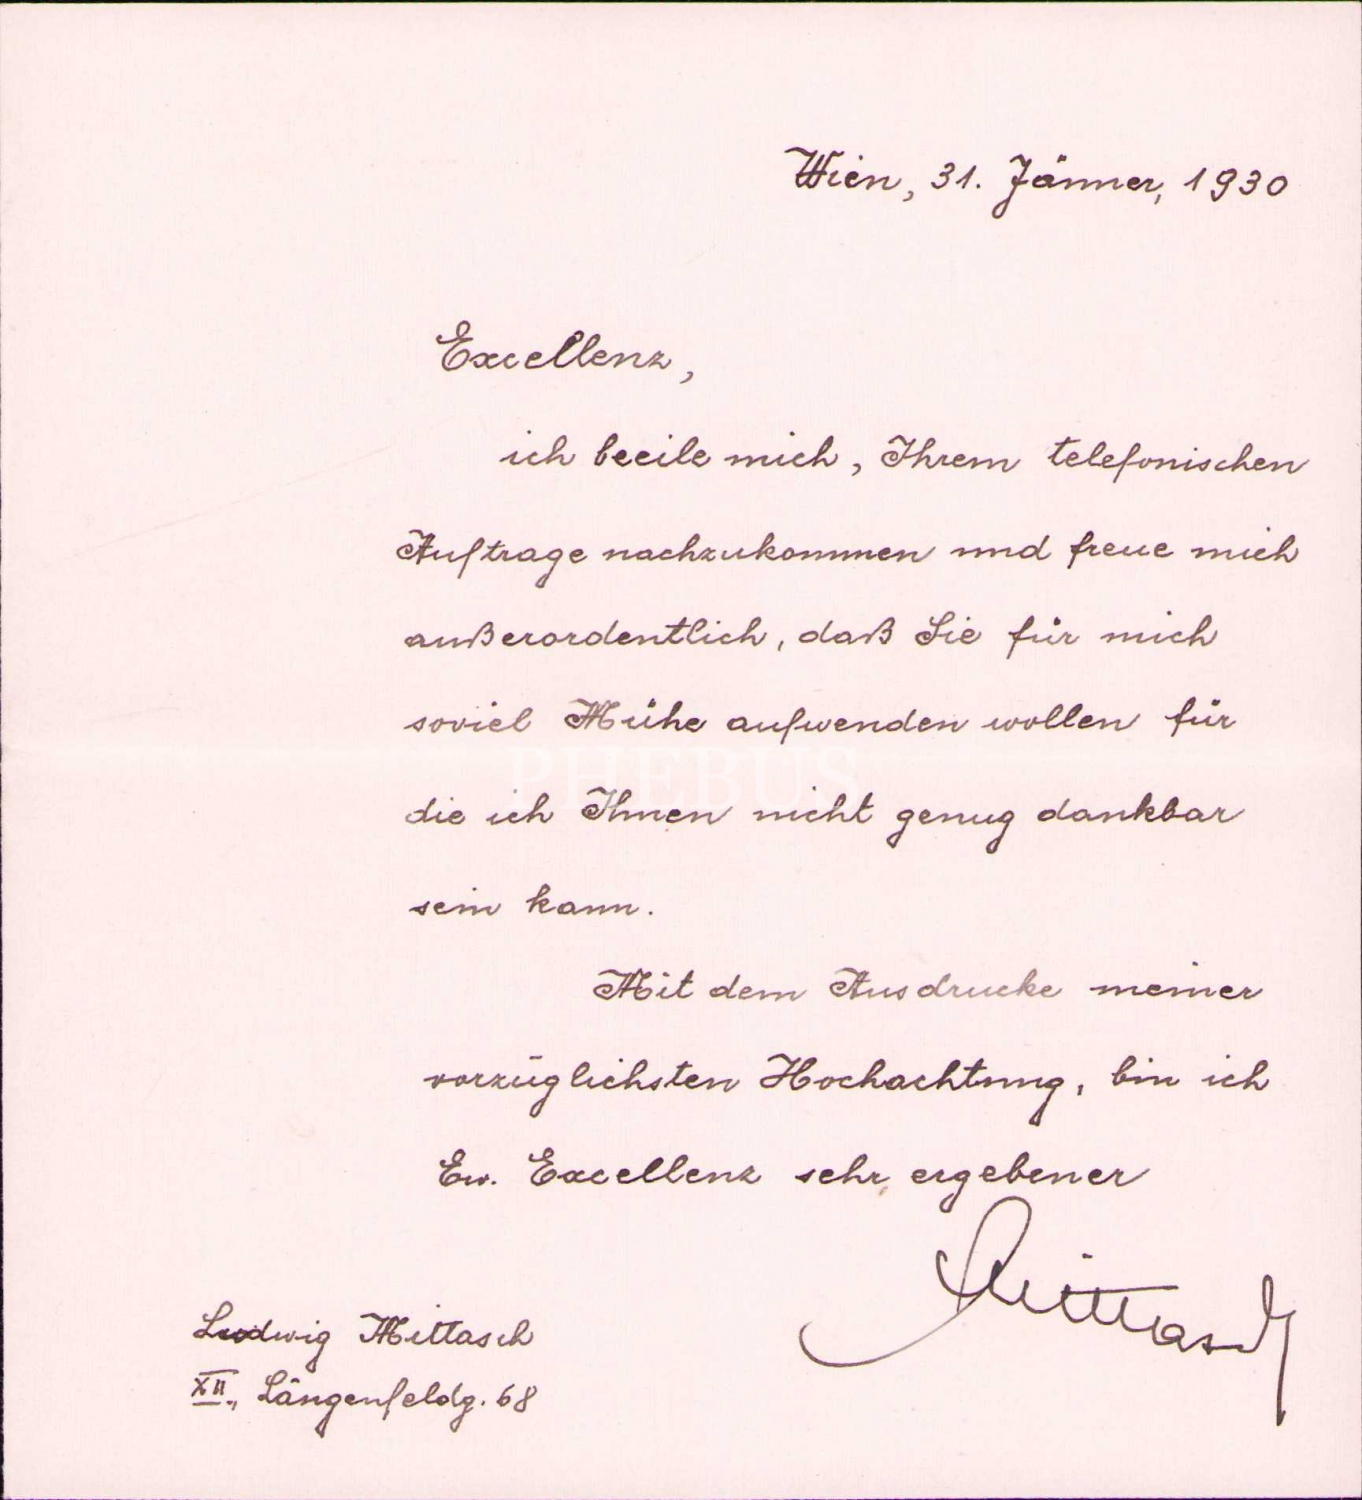 Wien, 31. Jänner, 1930
Excellenz,
ich beeile mich, Ihrem telefonischen
Auftrage nachzukommen und freue mich
außerordentlich, daß Sie für mich
soviel Mühe aufwenden wollen für
PHEBUS
die ich Ihnen nicht genug dankbar
sein kann.
Mit dem Ausdrucke meiner
vorzüglichsten Hochachtung, bin ich
Ew. Excellenz sehr ergebener
Mittasch
Ludwig Mittasch
XII., Längenfeldg. 68